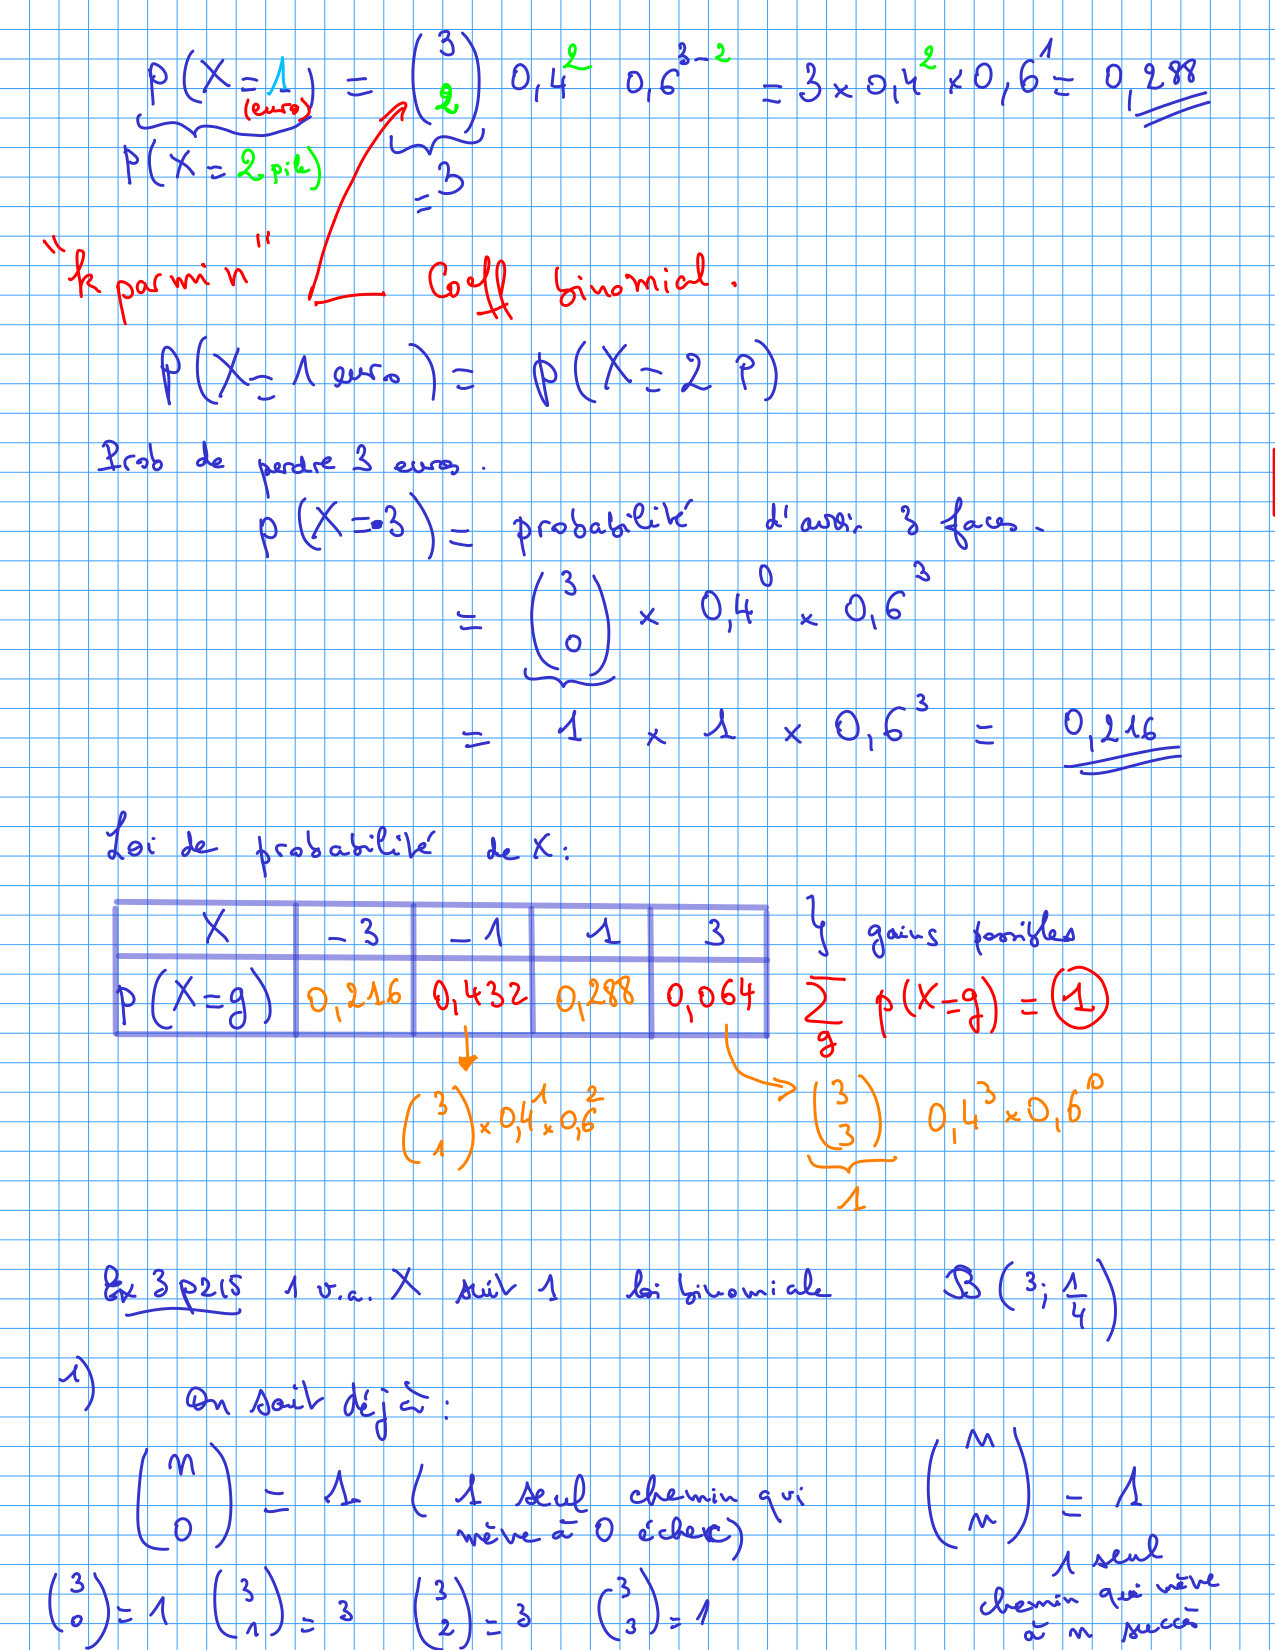 p(X=1) = (3 2) 0,4² 0,6³⁻² = 3 × 0,4² × 0,6¹ = 0,288
(euro)
p(X = 2 pile)
= 3
"k parmi n"
Coeff binomial.
p(X = 1 euro) = p(X = 2 P)
Prob de perdre 3 euros.
p(X = -3) = probabilité d'avoir 3 faces.
= (3 0) × 0,4⁰ × 0,6³
= 1 × 1 × 0,6³ = 0,216
Loi de probabilité de X :
X -3 -1 1 3 } gains possibles
p(X=g) 0,216 0,432 0,288 0,064 ∑g p(X=g) = 1
(3 1) × 0,4¹ × 0,6² (3 3) 0,4³ × 0,6⁰
1
Ex 3 p215 1 v.a. X suit 1 loi binomiale B(3; 1/4)
1) On sait déjà :
(n 0) = 1 (1 seul chemin qui
mène à 0 échec)
(n n) = 1
1 seul
chemin qui mène
à n succès
(3 0) = 1 (3 1) = 3 (3 2) = 3 (3 3) = 1